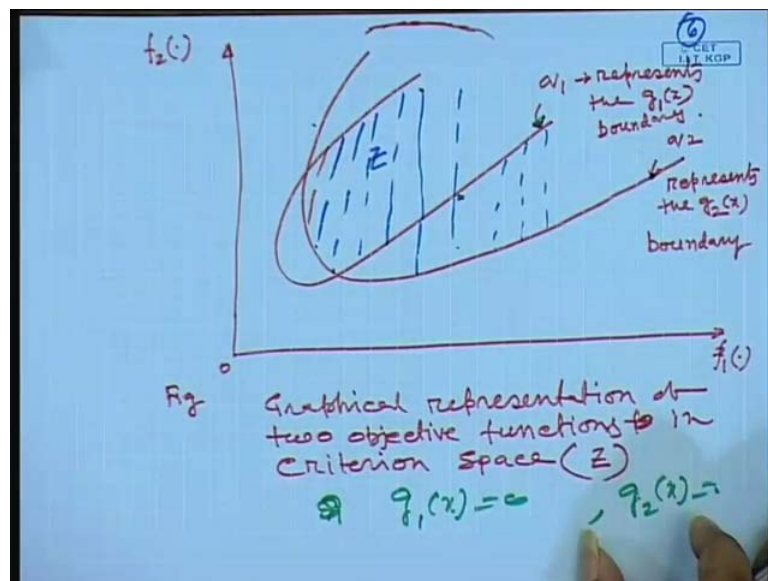 6
C CET
I.I.T. KGP
f₂(·)
a₁ → represents
the g₁(x)
boundary.
a₂
represents
the g₂(x)
boundary
Z
0
f₁(·)
Fig Graphical representation of
two objective functions in
Criterion Space (Z)
g₁(x) = 0 , g₂(x) =